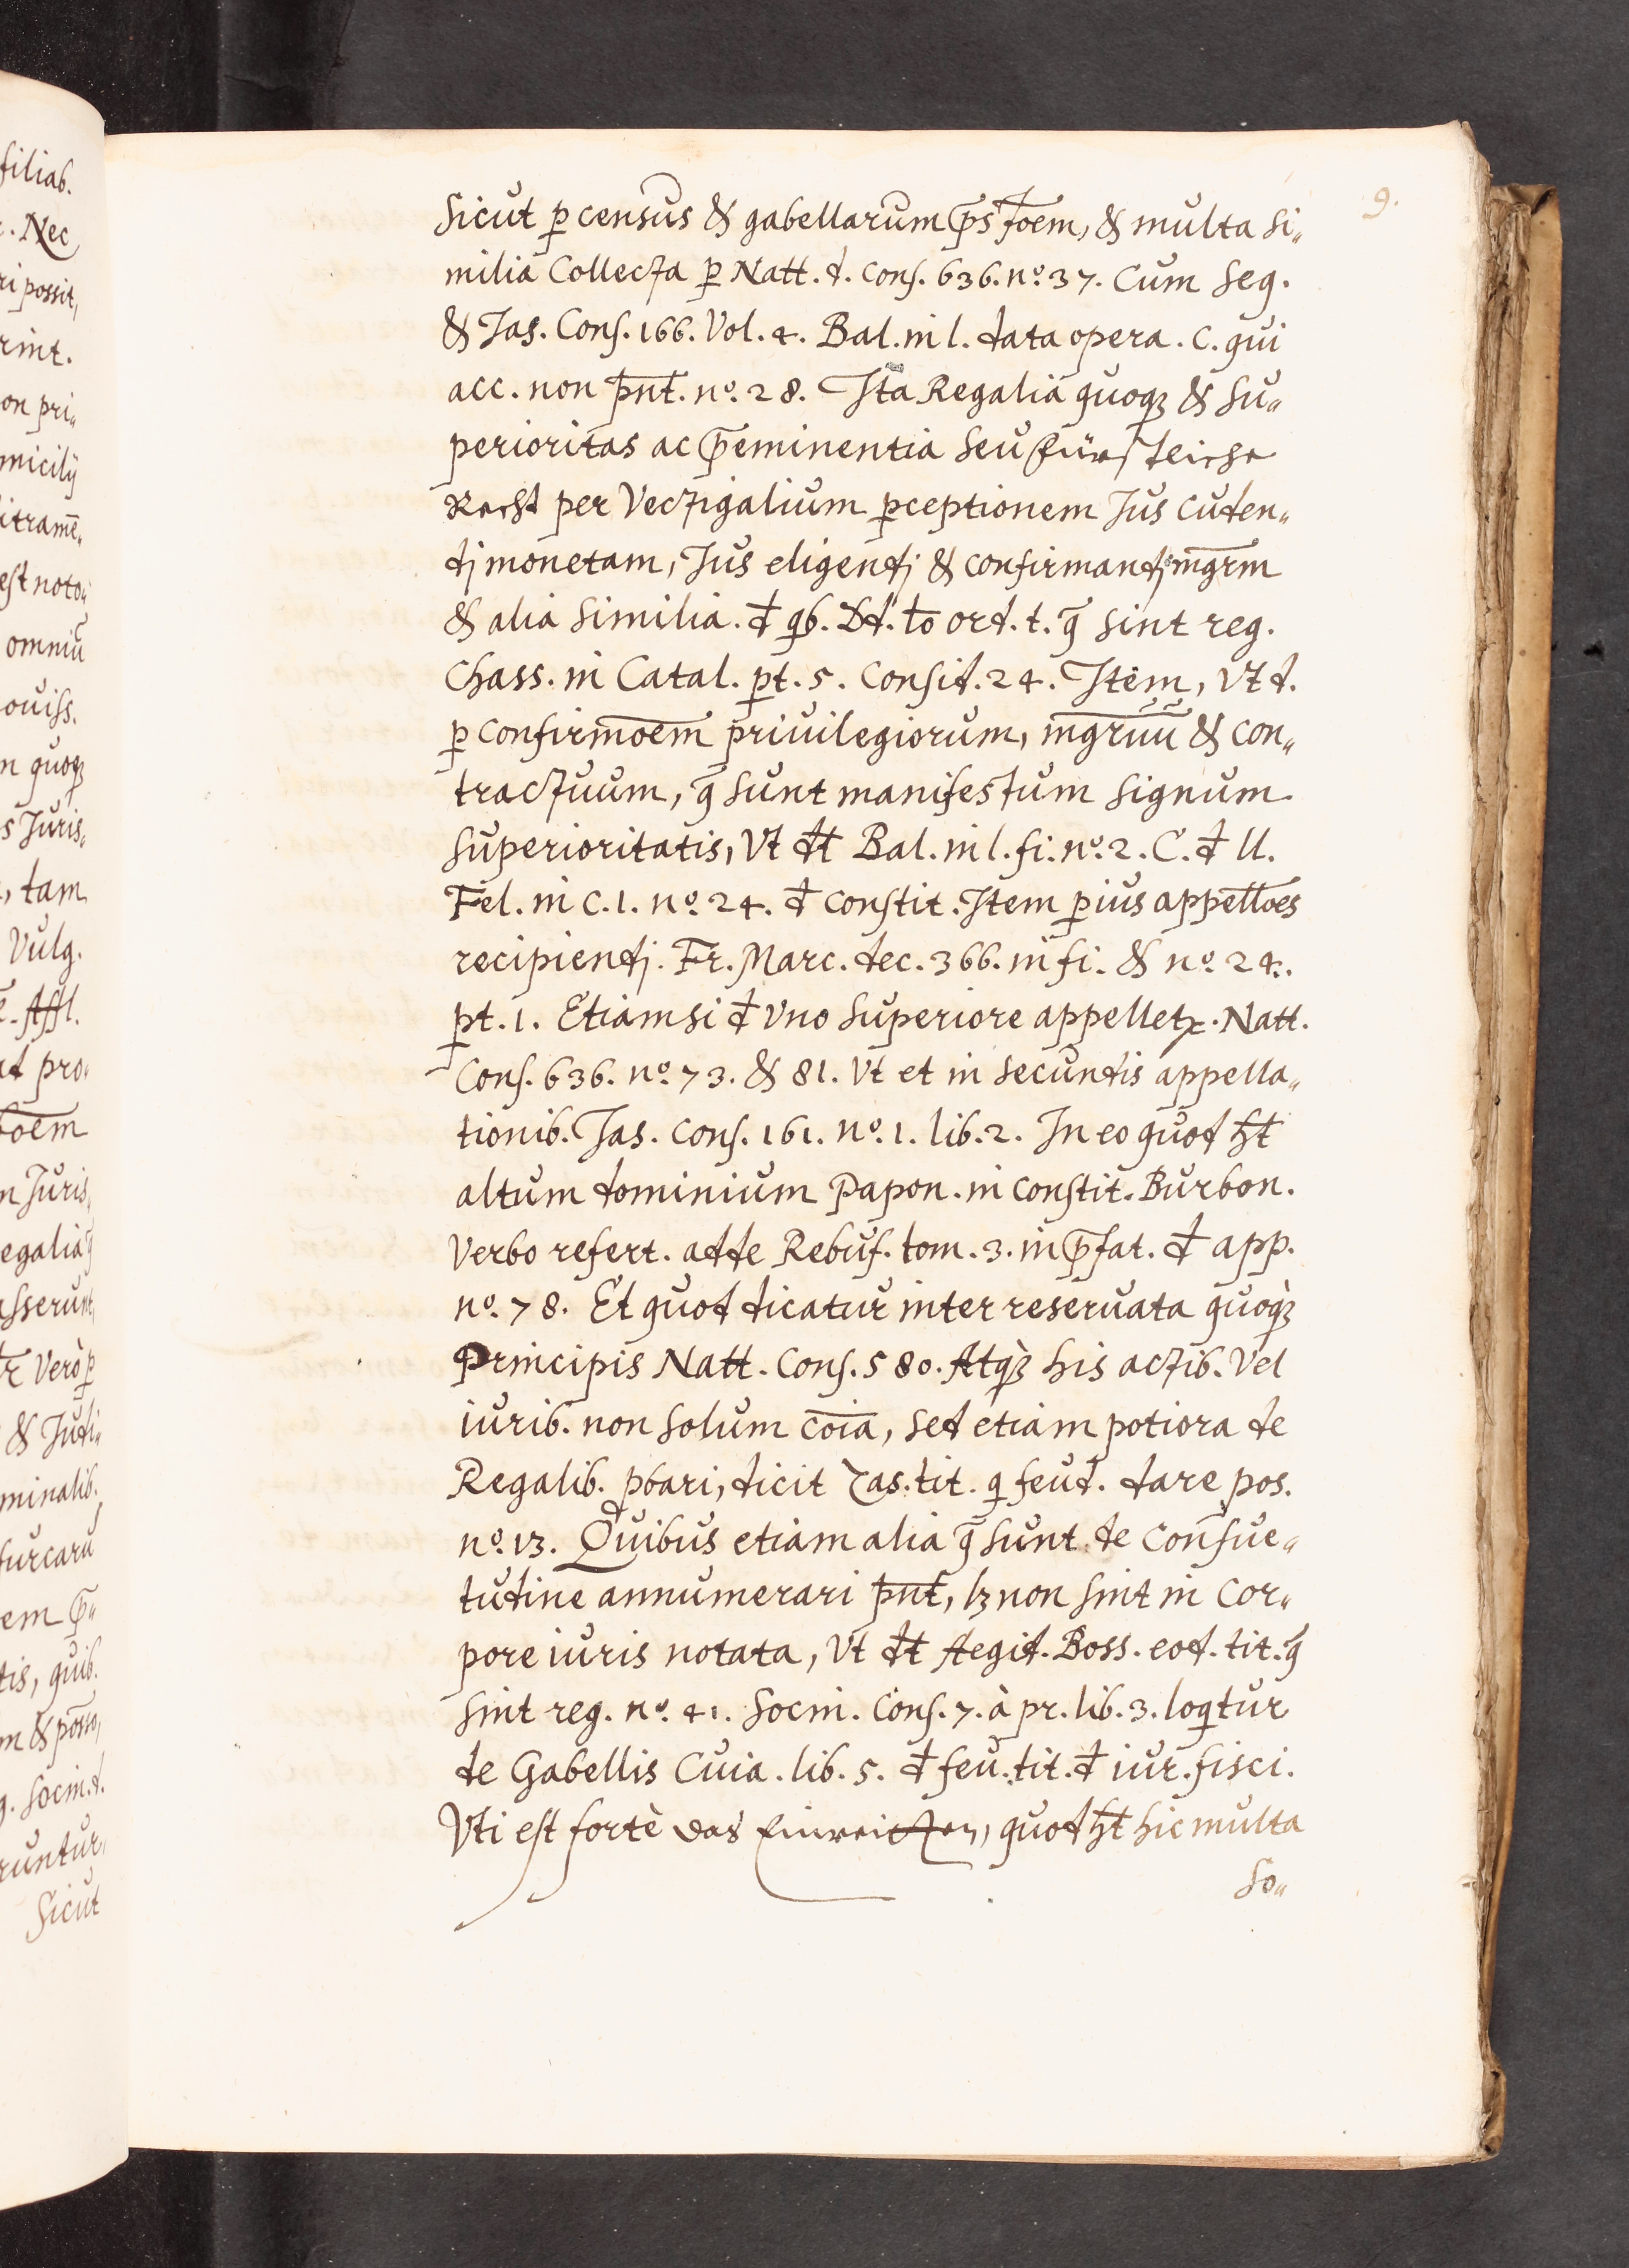 9.
Sicut p̱ census & gabellarum p̄s̄s̄oem, & multa si„
milia Collecta p̱ Natt. d. Cons. 636. nº. 37. Cum Seq.
& Jas. Cons. 166. Vol. 4. Bal. in l. data opera. C. qui
acc. non pn̄t. nº. 28. Ita Regalia quoqꝫ & Su„
perioritas ac p̄eminentia Seu fürstliche
Recht per Vectigalium p̱ceptionem Jus Cuden„
dj monetam, Jus eligendj & confirmandj mgr̄m
& alia Similia. đ qb. Dd. to ord. t. q̄ sint reg.
Chass. in Catal. pt. 5. Consid. 24. Item, Vt d.
p̱ confirmōem priuilegiorum, mgrūū & con„
tractuum, q̄ Sunt manifestum Signum
Superioritatis, Vt đt Bal. in l. fi. nº. 2. C. đ ll.
Fel. in C. 1. nº. 24. đ Constit. Item p̱ ius appellōes
recipiendj. Fr. Marc. dec. 366. in fi. & nº. 24.
pt. 1. Etiamsi đ Vno Superiore appelletr. Natt.
Cons. 636. nº. 73. & 81. Vt et in Secundis appella„
tionib. Jas. Cons. 161. nº. 1. lib. 2. In eo quod ħt
altum dominium Papon. in Constit. Burbon.
Verbo refert. adde Rebuf. tom. 3. in p̄fat. đ app.
nº. 78. Et quod dicatur inter reseruata quoqꝫ
Principis Natt. Cons. 580. Atqꝫ his actib. Vel
iurib. non Solum cōia, Sed etiam potiora de
Regalib. pbari, dicit Zas. tit. q feud. dare pos.
nº. 13. Quibus etiam alia q̄ Sunt de Consue„
tudine annumerari pn̄t, lꝫ non Sint in Cor„
pore iuris notata, Vt đt Aegid. Boss. eod. tit. q̄
Sint reg. nº. 41. Socin. Cons. 7. à pr. lib. 3. loqtur
de Gabellis Cuia. lib. 5. đ feu. tit. đ iur. fisci.
Vti est fortè das , quod ħt hic multa
So„
filiab.
Nec
ri possit,
rint.
on pri„
micilij
itramē„
est noto„
omniū
ouiss.
n quoqꝫ
s Juris„
, tam
Vulg.
Affl.
pro„
n Juris„
egalia
sserunt,
Verò p̱
& Judi„
minalib.
furcarū
em p̄„
tis, quib.
m & posso„
Socin. d.
runtur,
Sicut